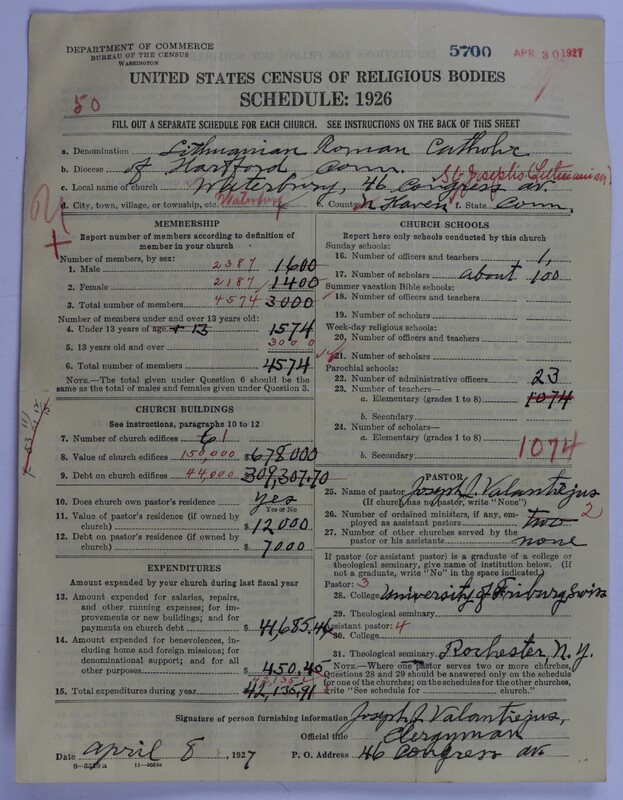 DEPARTMENT OF COMMERCE
BUREAU OF THE CENSUS
WASHINGTON
5700
APR 30 1927
UNITED STATES CENSUS OF RELIGIOUS BODIES
50
SCHEDULE: 1926
FILL OUT A SEPARATE SCHEDULE FOR EACH CHURCH. SEE INSTRUCTIONS ON THE BACK OF THIS SHEET
a. Denomination Lithuanian Roman Catholic
b. Diocese of Hartford Conn. St Joseph's (Lithuanian)
c. Local name of church Waterbury, 46 Congress av.
d. City, town, village, or township, etc. Waterbury e. County N Haven f. State Conn.
MEMBERSHIP
Report number of members according to definition of member in your church
Number of members, by sex:
1. Male 2387 1600
2. Female 2187 1400
3. Total number of members 4574 3000
Number of members under and over 13 years old:
4. Under 13 years of age + 13 1574
5. 13 years old and over 3000
6. Total number of members 4574
NOTE.—The total given under Question 6 should be the same as the total of males and females given under Question 3.
CHURCH BUILDINGS
See instructions, paragraphs 10 to 12
7. Number of church edifices 6 1
8. Value of church edifices 150,000 $678,000
9. Debt on church edifices 44,000 309,307.70
10. Does church own pastor's residence yes
Yes or No
11. Value of pastor's residence (if owned by church) $12000
12. Debt on pastor's residence (if owned by church) $7000
EXPENDITURES
Amount expended by your church during last fiscal year
13. Amount expended for salaries, repairs, and other running expenses; for improvements or new buildings; and for payments on church debt $41,685.46
14. Amount expended for benevolences, including home and foreign missions; for denominational support; and for all other purposes $450.45
15. Total expenditures during year $42,136,91
CHURCH SCHOOLS
Report here only schools conducted by this church
Sunday schools:
16. Number of officers and teachers 1,
17. Number of scholars about 100
Summer vacation Bible schools:
18. Number of officers and teachers
19. Number of scholars
Week-day religious schools:
20. Number of officers and teachers
21. Number of scholars
Parochial schools:
22. Number of administrative officers 23
23. Number of teachers—
a. Elementary (grades 1 to 8) 1074
b. Secondary
24. Number of scholars—
a. Elementary (grades 1 to 8) 1074
b. Secondary
PASTOR
25. Name of pastor Joseph J. Valantiejus
(If church has no pastor, write "None")
26. Number of ordained ministers, if any, employed as assistant pastors two 2
27. Number of other churches served by the pastor or his assistants none
If pastor (or assistant pastor) is a graduate of a college or theological seminary, give name of institution below. (If not a graduate, write "No" in the space indicated)
Pastor: 3
28. College University of Friburg Swiss
29. Theological seminary
Assistant pastor: 4
30. College
31. Theological seminary Rochester N.Y.
NOTE.—Where one pastor serves two or more churches, Questions 28 and 29 should be answered only on the schedule for one of the churches; on the schedules for the other churches, write "See schedule for church."
Signature of person furnishing information Joseph J. Valantiejus,
Official title Clergyman
Date april 8, 1927 P. O. Address 46 Congress av.